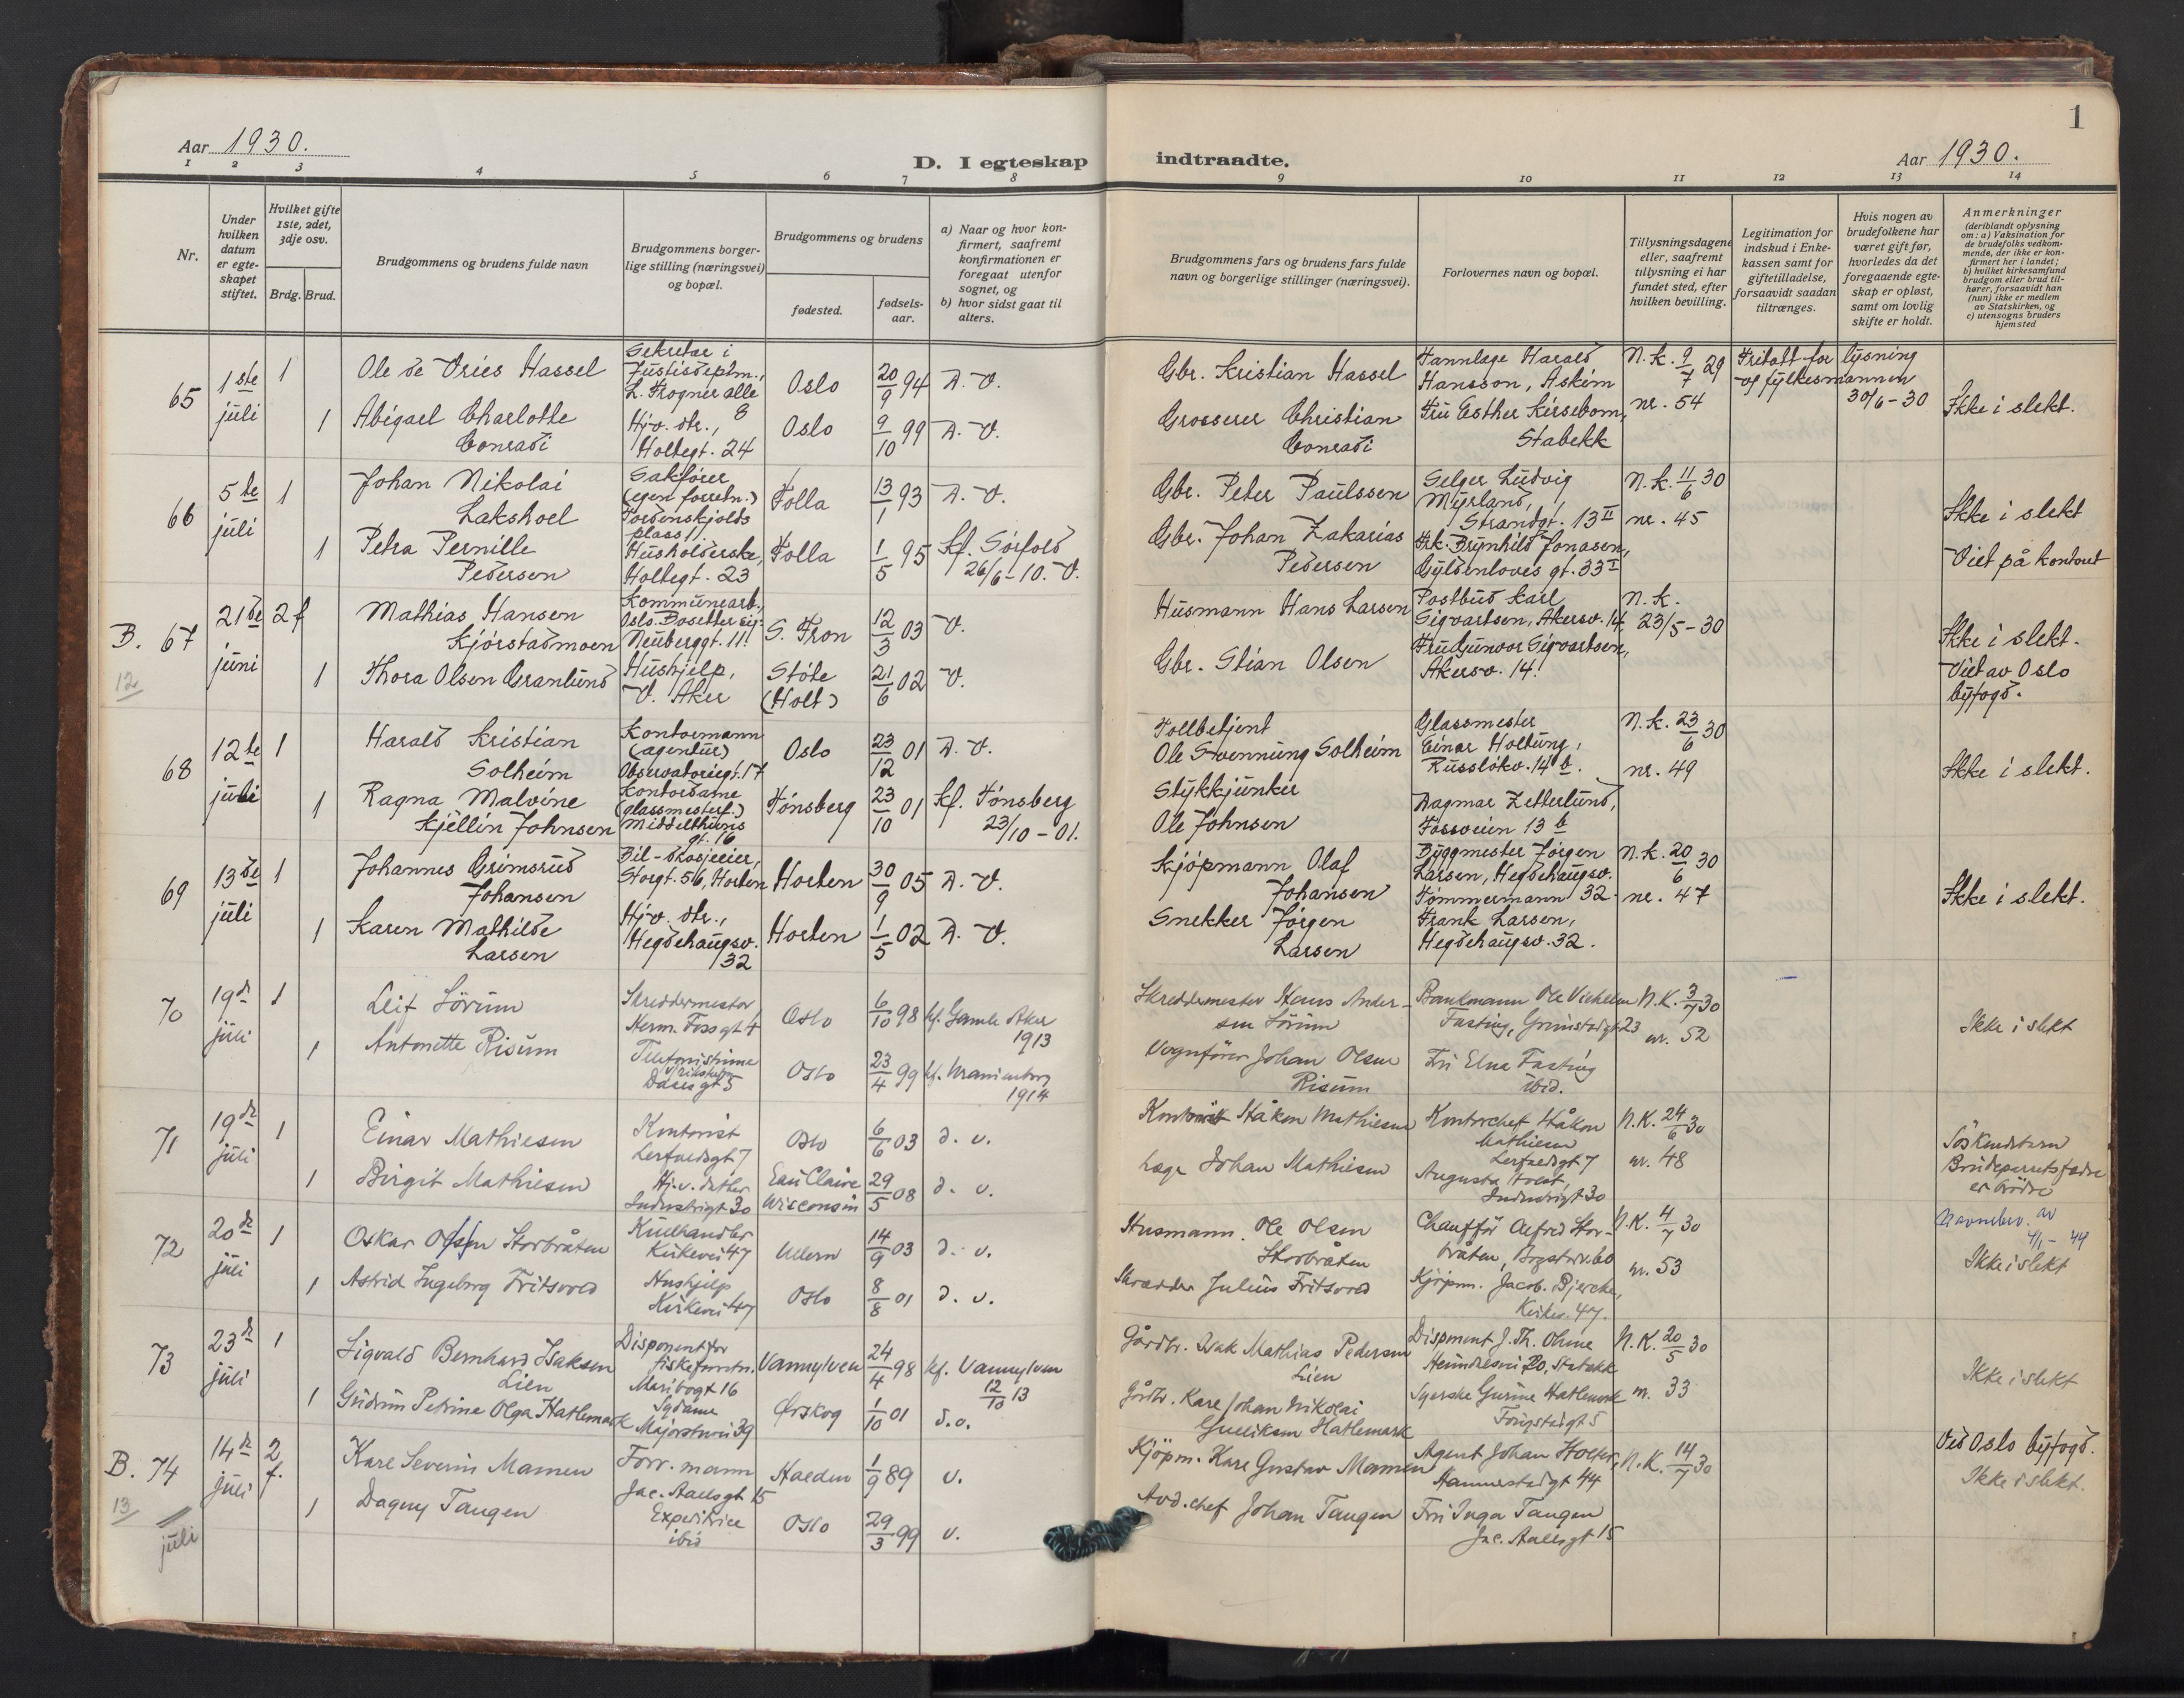 1
Aar 1930.
D. I egteskap
indtraadte.
Aar 1930.
1 2 3 4 5 6 7 8 9 10 11 12 13 14
Nr.
Under hvilken datum er egteskapet stiftet.
Hvilket gifte 1ste, 2det, 3dje osv.
Brdg. Brud.
Brudgommens og brudens fulde navn
Brudgommens borgerlige stilling (næringsvei) og bopæl.
Brudgommens og brudens
fødested.
fødselsaar.
a) Naar og hvor konfirmert, saafremt konfirmationen er foregaat utenfor sognet, og
b) hvor sidst gaat til alters.
Brudgommens fars og brudens fars fulde navn og borgerlige stillinger (næringsvei).
Forlovernes navn og bopæl.
Tillysningsdagene eller, saafremt tillysning ei har fundet sted, efter hvilken bevilling.
Legitimation for indskud i Enkekassen samt for giftetilladelse, forsaavidt saadan tiltrænges.
Hvis nogen av brudefolkene har været gift før, hvorledes da det foregaaende egteskap er opløst, samt om lovlig skifte er holdt.
Anmerkninger (deriblandt oplysning om: a) Vaksination for de brudefolks vedkommende, der ikke er konfirmert her i landet; b) hvilket kirkesamfund brudgom eller brud tilhører, forsaavidt han (hun) ikke er medlem av Statskirken, og c) utensogns bruders hjemsted
65
1ste juli
1
Ole de Vries Hassel
Sekretær i Justisdeptm., L. Frogner allé 8
Oslo
20/9 94
D. V.
Gbr. Kristian Hassel
Tannlæge Harald Hansson, Askim
N.k. 9/7 29
nr. 54
Fritatt for lysning
af fylkesmannen
30/6-30
Ikke i slekt.
1
Abigael Charlotte Conradi
Hjv. dtr., Holtegt. 24
Oslo
9/10 99
D. V.
Grosserer Christian Conradi
Fru Esther Kirsebom, Stabekk
66
5te juli
1
Johan Nikolai Lakshoel
Sakfører (egen forretn.) Tordenskjolds plass 1.
Folla
13/1 93
D. V.
Gbr. Peter Paulssen
Selger Ludvig Myrland, Strandgt. 13 II
N.k. 11/6 30
nr. 45
Ikke i slekt
Viet på kontoret
1
Petra Pernille Pedersen
Husholderske, Holtegt. 23
Folla
1/5 95
kf. Sørfold 26/6-10. V.
Gbr. Johan Zakarias Pedersen
Frk. Brynhild Jonasen, Gyldenløves gt. 33 I
B. 67
12
21de juni
2 f
Mathias Hansen Kjørstadmoen
Kommunearb., Neuberggt. 11!
S. Fron
12/3 03
V.
Husmann Hans Larsen
Postbud Karl Sigvartsen, Akersv. 14
N.k.
23/5-30
Ikke i slekt.
Viet av Oslo byfogd.
1
Thora Olsen Granlund
Hushjelp, V. Aker
Støle (Holt)
21/6 02
V.
Gbr. Stian Olsen
Fru Gunvor Sigvartsen, Akersv. 14!
68
12te juli
1
Harald Kristian Solheim
Kontormann (agentur) Observatoriegt. 17
Oslo
23/12 01
D. V.
Tollbetjent Ole Svennung Solheim
Glassmester Einar Holtung, Russløkv. 14 b.
N.k. 23/6 30
nr. 49
Ikke i slekt.
1
Ragna Malvine Kjellin Johnsen
Kontordame (glassmesterf.) Middelthuns gt. 16
Tønsberg
23/10 01
kf. Tønsberg 23/10-01.
Stykkjunker Ole Johnsen
Dagmar Zetterlund, Fossveien 13 b
69
13de juli
1
Johannes Grimsrud Johansen
Bil-drosjeeier, Storgt. 56, Horten
Horten
30/9 05
D. V.
Kjøpmann Olaf Johansen
Byggmester Jørgen Larsen, Hegdehaugsv. 32.
N.k. 20/6 30
nr. 47
Ikke i slekt.
1
Karen Mathilde Larsen
Hjv. dtr., Hegdehaugsv. 32
Horten
1/5 02
D. V.
Snekker Jørgen Larsen
Tømmermann Frank Larsen, Hegdehaugsv. 32.
70
19de juli
1
Leif Sørum
Skreddermester Herm. Fossgt 4
Oslo
6/10 98
kf. Gamle Aker 1913
Skreddermester Hans Andersen Sørum
Bankmann Ole Vilhelm Fasting, Grimstadgt 23
N.K. 3/7 30
nr. 52
Ikke i slekt
1
Antonette Risum
Telefonistinne Daasgt 5
Oslo
23/4 99
kf. Uranienborg 1914
Vognfører Johan Olsen Risum
Fru Elna Fasting ibid.
71
19de juli
1
Einar Mathiesen
Kontorist Lerfaldsgt 7
Oslo
6/6 03
d. v.
Kontorist Håkon Mathiesen
Kontorchef Håkon Mathiesen Lerfaldsgt 7
N.K. 24/6 30
nr. 48
Søskendebarn
Brudeparrets fædre
er brødre
1
Birgit Mathiesen
Hj.v. datter Industrigt 30
Eau Claire Wisconsin
29/5 08
d. v.
Læge Johan Mathiesen
Augusta Industrigt 30
72
20de juli
1
Oskar Olsen Storbråten
Kulhandler Kirkevei 47
Ullern
14/9 03
d. v.
Husmann Ole Olsen Storbråten
Chauffør Alfred Storbråten, 60
N.K. 4/7 30
nr. 53
Navnebev. av
4/1-44
Ikke i slekt
1
Astrid Ingeborg Fritsvold
Hushjelp Kirkevei 47
Oslo
8/8 01
d. v.
Skrædder Julius Fritsvold
Kjøpm. Jacob Bjercke, Kirkev. 47.
73
23de juli
1
Sigvald Bernhard Isaksen Lien
Disponent for fiskeforretn. Maribogt 16
Vannylven
24/4 98
kf. Vannylven 12/10 13
Gårdbr. Isak Mathias Pedersen Lien
Disponent J. Th. Ohme Heimdalsvei 20, Stabekk
N.K. 20/5 30
nr. 33
Ikke i slekt
1
Gudrun Petrine Olga Hatlemark
Sydame Majorstuvei 39
Ørskog
1/10 01
d. v.
Gårdbr. Kare Johan Nikolai Gulliksen Hatlemark
Syerske Gurine Hatlemark
B. 74
13
juli
14de juli
2 f.
Kare Severin Mamen
Forr. mann Jac. Aallsgt 15
Halden
1/9 89
v.
Kjøpm. Kare Gustav Mamen
Agent Johan Holter, Hammerstadgt 44
N.K. 14/7 30
Ved Oslo byfogd.
Ikke i slekt.
1
Dagny Tangen
Expeditrice ibid
Oslo
29/3 99
v.
Avd. chef Johan Tangen
Fru Inga Tangen Jac. Aallsgt 15